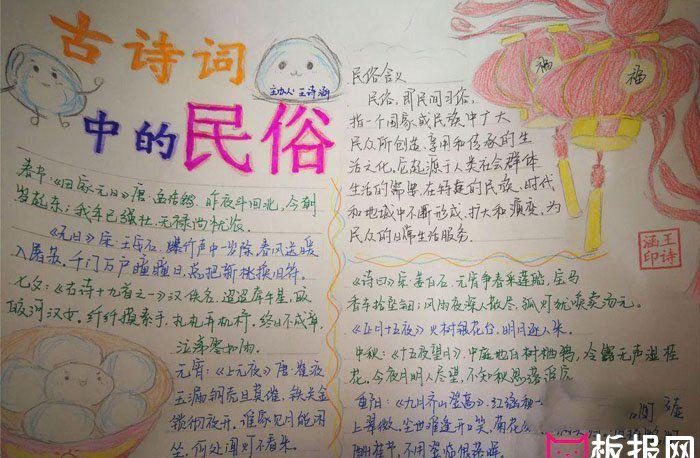 古诗词
中的民俗
主办人:王诗涵
春节:《田家元日》唐·孟浩然 昨夜斗回北,今朝
岁起东;我年已强壮,无禄尚忧农.
《元日》宋·王安石 爆竹声中一岁除,春风送暖
入屠苏.千门万户曈曈日,总把新桃换旧符.
七夕:《古诗十九首之一》汉·佚名 迢迢牵牛星,皎
皎河汉女.纤纤擢素手,札札弄机杼.终日不成章,
泣涕零如雨.
元宵:《上元夜》唐·崔液
玉漏铜壶且莫催,铁关金
锁彻夜开.谁家见月能闲
坐,何处闻灯不看来.
民俗含义
民俗,即民间习俗,
指一个国家或民族中广大
民众所创造、享用和传承的生
活文化,它起源于人类社会群体
生活的需要,在特定的民族、时代
和地域中不断形成、扩大和演变,为
民众的日常生活服务.
福
福
王诗
涵印
《诗曰》宋·姜白石 元宵争看采莲船,宝马
香车拾坠钿;风雨夜深人散尽,孤灯犹唤卖汤元.
《正月十五夜》火树银花合,明月逐人来.
中秋:《十五夜望月》中庭地白树栖鸦,冷露无声湿桂
花,今夜月明人尽望,不知秋思落谁家
重阳:《九月齐山登高》
上翠微.尘世难逢开口笑,菊花
酬佳节,不用登临
板报网